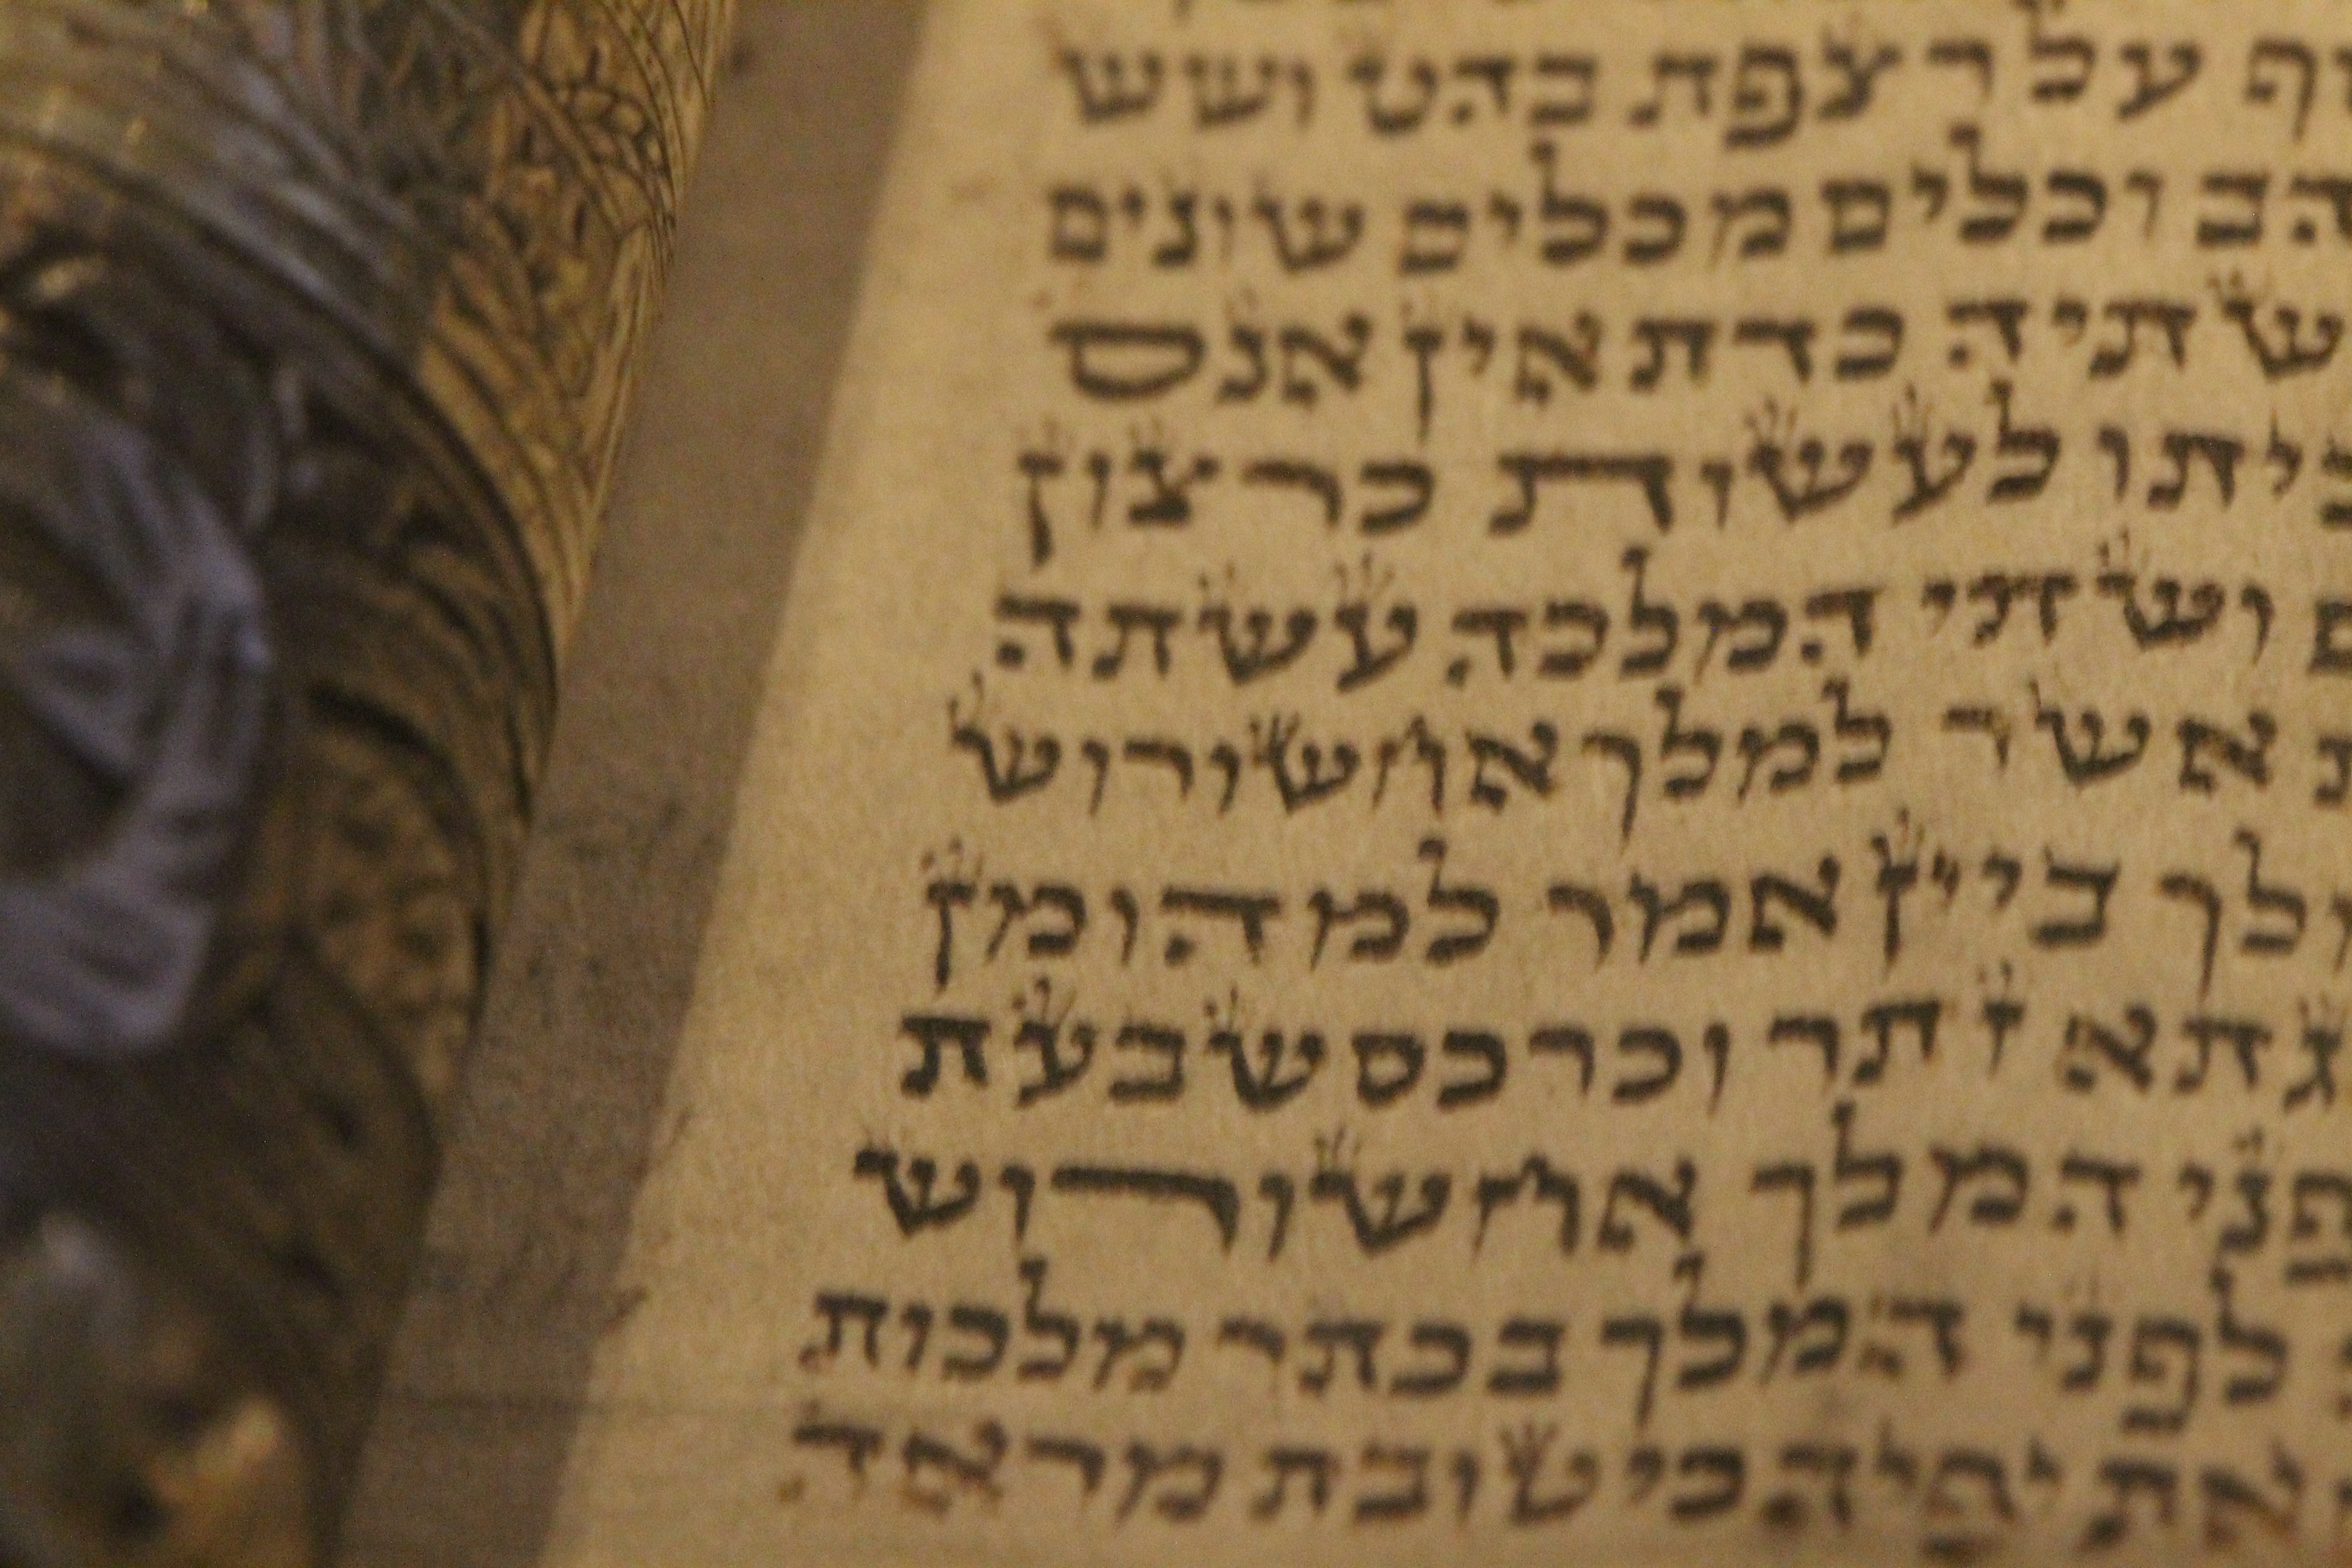 על רצפת בהט ושש
וכלים מכלים שונים
כדת אין אנס
לעשות כרצון
ושתי המלכה עשתה
אשר למלך אחשורוש
ביין אמר למהומן
זתר וכרכס שבעת
המלך אחשורוש
לפני המלך בכתר מלכות
את יפיה כי טובת מראה